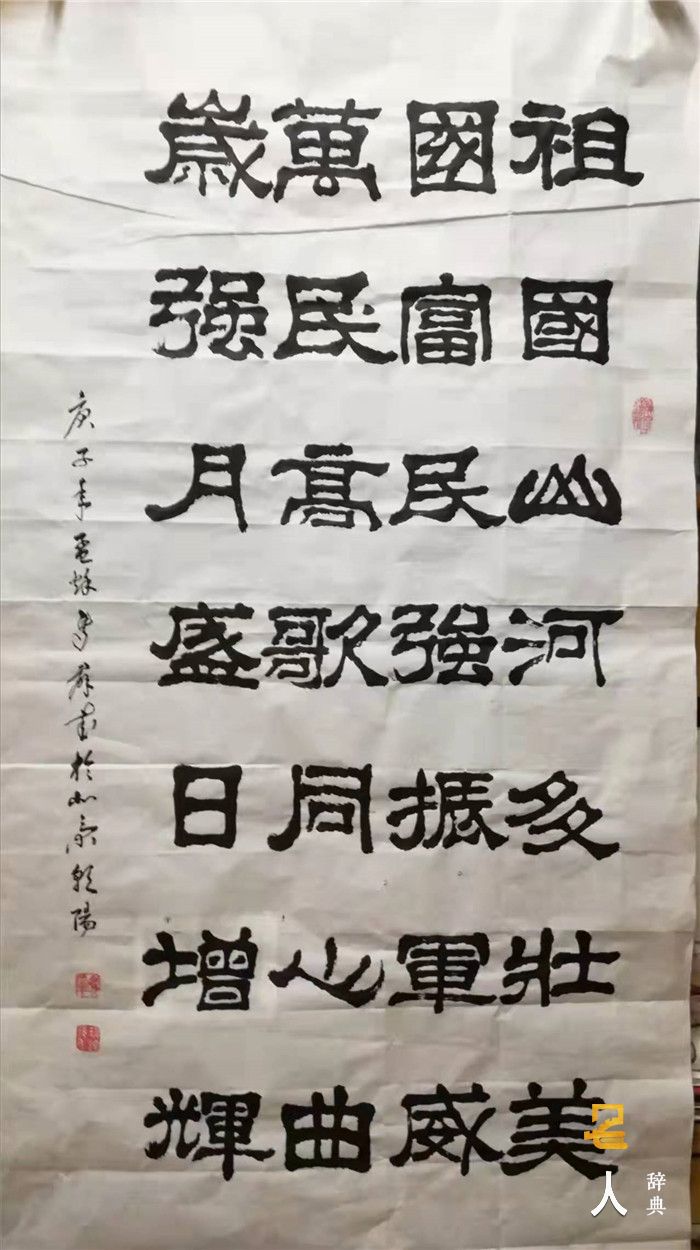 祖國山河多壯美
國富民强振軍威
萬民髙歌同心曲
歲强月盛日增輝
庚子年
於北京朝陽
名人
辞典